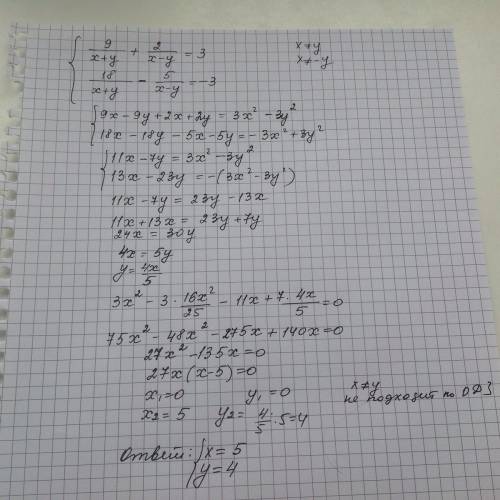 { 9/(x+y) + 2/(x-y) = 3    x≠y
18/(x+y) - 5/(x-y) = -3    x≠-y
{ 9x - 9y + 2x + 2y = 3x² - 3y²
18x - 18y - 5x - 5y = -3x² + 3y²
{ 11x - 7y = 3x² - 3y²
13x - 23y = -(3x² - 3y²)
11x - 7y = 23y - 13x
11x + 13x = 23y + 7y
24x = 30y
4x = 5y
y = 4x/5
3x² - 3 · 16x²/25 - 11x + 7 · 4x/5 = 0
75x² - 48x² - 275x + 140x = 0
27x² - 135x = 0
27x(x - 5) = 0
x₁ = 0    y₁ = 0    x≠y не подходит по ОДЗ
x₂ = 5    y₂ = 4/5 · 5 = 4
Ответ: { x = 5
y = 4